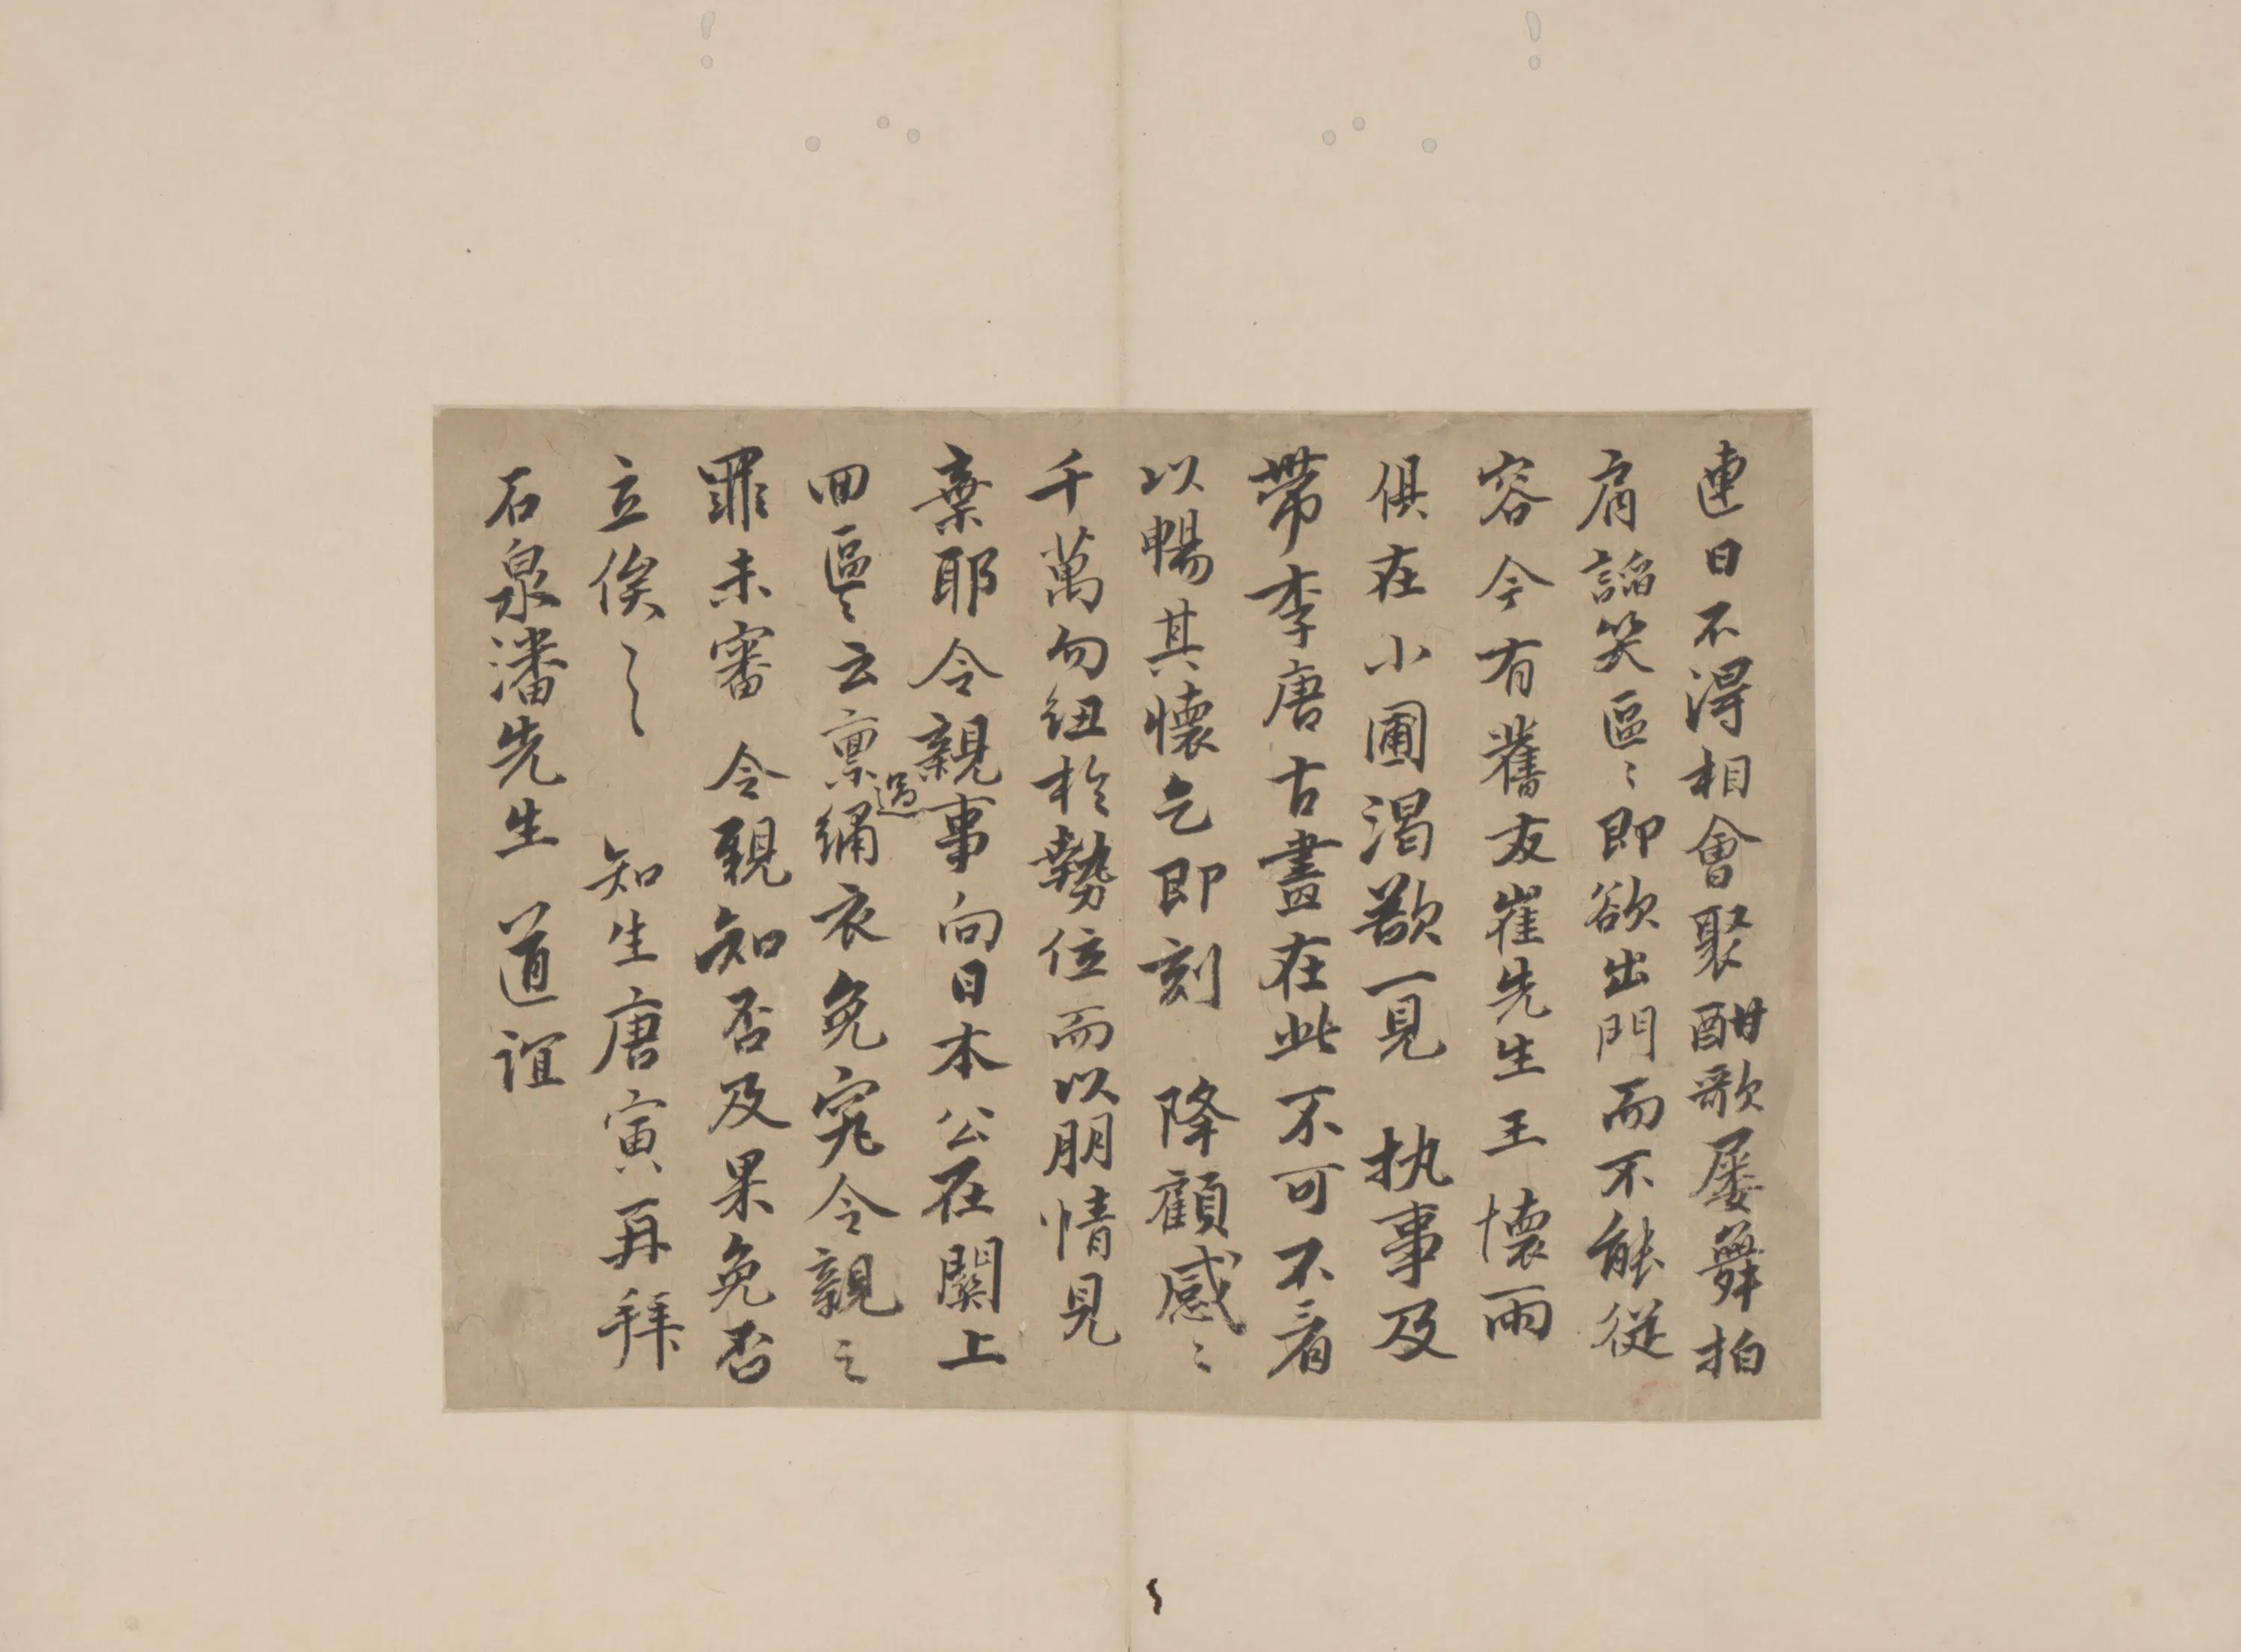 連日不得相會聚酣歌屢舞拍
肩謟笑區〻即欲出門而不能從
容今有舊友崔先生王懷雨
俱在小圃渴欲一見執事及
帶李唐古畫在此不可不看
以暢其懷乞即刻降顧感〻
千萬勿紐於勢位而以朋情見
棄耶令親事向日本公在關上
回過區〻云稟綉衣免究令親之
罪未審令親知否及果免否
立俟〻〻知生唐寅再拜
石泉潘先生道誼